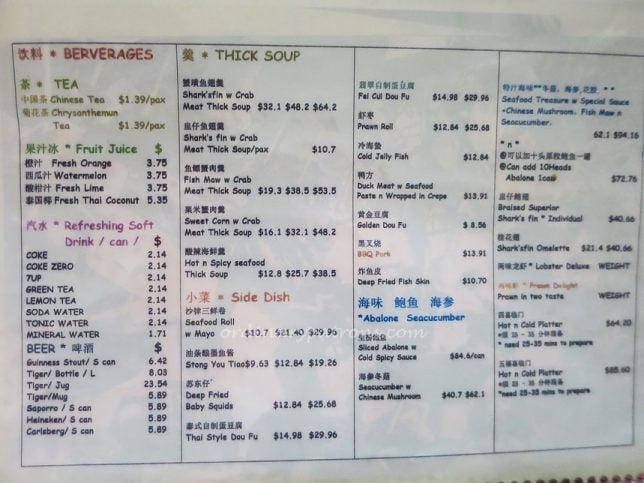 饮料 * BERVERAGES
茶 * TEA
中国茶 Chinese Tea $1.39/pax
菊花茶 Chrysanthemun
Tea $1.39/pax
果汁冰 * Fruit Juice $
橙汁 Fresh Orange 3.75
西瓜汁 Watermelon 3.75
酸柑汁 Fresh Lime 3.75
泰国椰 Fresh Thai Coconut 5.35
汽水 * Refreshing Soft
Drink / can / $
COKE 2.14
COKE ZERO 2.14
7UP 2.14
GREEN TEA 2.14
LEMON TEA 2.14
SODA WATER 2.14
TONIC WATER 2.14
MINERAL WATER 1.71
BEER * 啤酒 $
Guinness Stout/ S can 6.42
Tiger/ Bottle / L 8.03
Tiger/ Jug 23.54
Tiger/Mug 5.89
Saporro / S can 5.89
Heineken/ S can 5.89
Carlsberg/ S can 5.89
羹 * THICK SOUP
蟹璜鱼翅羹
Shark'sfin w Crab
Meat Thick Soup $32.1 $48.2 $64.2
韭仔鱼翅羹
Shark's fin w Crab
Meat Thick Soup/pax $10.7
鱼鳔蟹肉羹
Fish Maw w Crab
Meat Thick Soup $19.3 $38.5 $53.5
粟米蟹肉羹
Sweet Corn w Crab
Meat Thick Soup $16.1 $32.1 $48.2
酸辣海鲜羹
Hot n Spicy seafood
Thick Soup $12.8 $25.7 $38.5
小菜 * Side Dish
沙律三鲜卷
Seafood Roll
w Mayo $10.7 $21.40 $29.96
油条酿墨鱼酱
Stong You Tiao $9.63 $12.84 $19.26
苏东仔
Deep Fried
Baby Squids $12.84 $25.68
泰式自制蛋豆腐
Thai Style Dou Fu $14.98 $29.96
翡翠自制蛋豆腐
Fei Cui Dou Fu $14.98 $29.96
虾枣
Prawn Roll $12.84 $25.68
冷海蛰
Cold Jelly Fish $12.84
鸭方
Duck Meat w Seafood
Paste n Wrapped in Crepe $13.91
黄金豆腐
Golden Dou Fu $ 8.56
黑叉烧
BBQ Pork $13.91
炸鱼皮
Deep Fried Fish Skin $10.70
海味 鲍鱼 海参
*Abalone Seacucumber
Sliced Abalone w
Cold Spicy Sauce $84.6/can
海参冬菇
Seacucumber w
Chinese Mushroom $40.7 $62.1
特汁海味**冬菇, 海参,花胶 **
Seafood Treasure w Special Sauce
*Chinese Mushroom. Fish Maw n
Seacucumber.
62.1 $94.16
* n *
@可以加十头原粒鲍鱼一罐
@Can add 10Heads
Abalone 1can $72.76
韭仔鲍翅
Braised Superior
Shark's fin * Individual $40.66
桂花翅
Shark'sfin Omelette $21.4 $40.66
两味龙虾* Lobster Deluxe WEIGHT
Prawn in two taste WEIGHT
四喜临门
Hot n Cold Platter $64.20
* need 25-35 mins to prepare
五福临门
Hot n Cold Platter $85.60
* need 25-35 mins to prepare